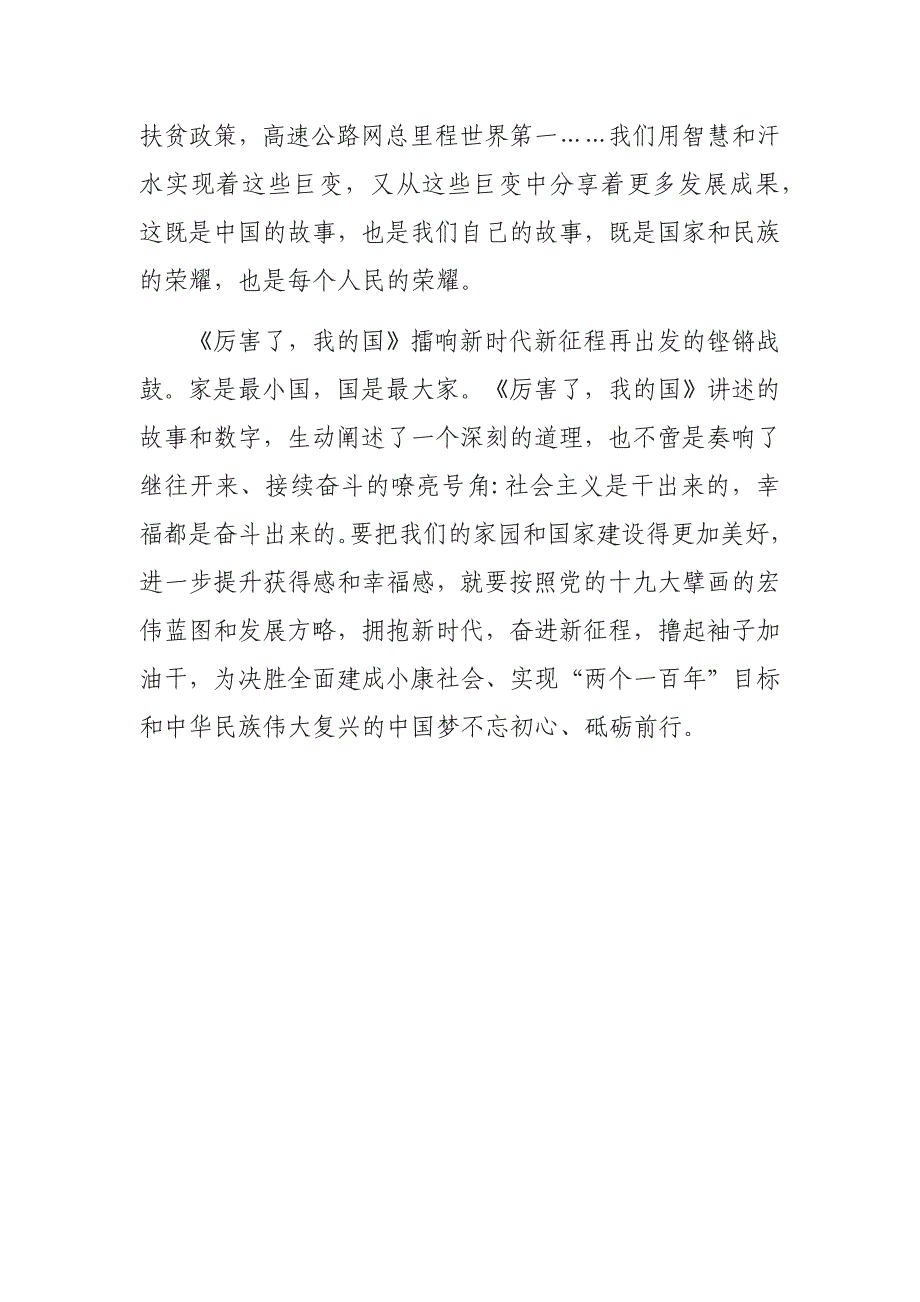 扶贫政策，高速公路网总里程世界第一……我们用智慧和汗
水实现着这些巨变，又从这些巨变中分享着更多发展成果，
这既是中国的故事，也是我们自己的故事，既是国家和民族
的荣耀，也是每个人民的荣耀。
《厉害了，我的国》擂响新时代新征程再出发的铿锵战
鼓。家是最小国，国是最大家。《厉害了，我的国》讲述的
故事和数字，生动阐述了一个深刻的道理，也不啻是奏响了
继往开来、接续奋斗的嘹亮号角:社会主义是干出来的，幸
福都是奋斗出来的。要把我们的家园和国家建设得更加美好，
进一步提升获得感和幸福感，就要按照党的十九大擘画的宏
伟蓝图和发展方略，拥抱新时代，奋进新征程，撸起袖子加
油干，为决胜全面建成小康社会、实现“两个一百年”目标
和中华民族伟大复兴的中国梦不忘初心、砥砺前行。